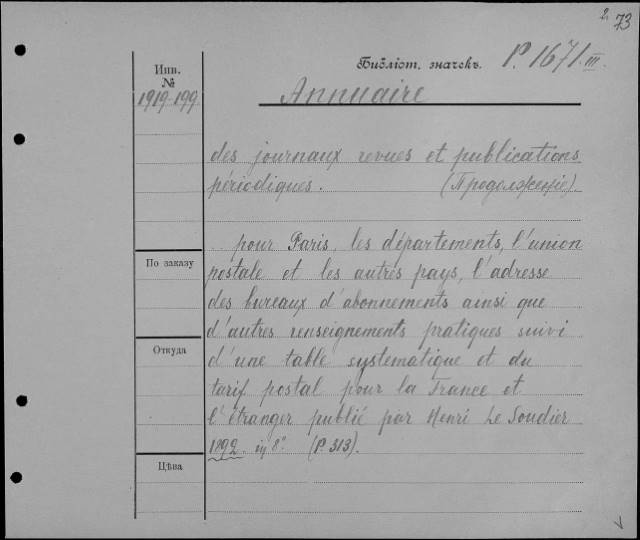 2.
73
Библіот. значекъ. P. 1671.III.
Инв.
№
1919-199
Annuaire
des journaux revues et publications
périodiques. (Продолженіе).
.. pour Paris, les départements, l'union
postale et les autres pays, l'adresse
По заказу
des bureaux d'abonnements ainsi que
d'autres renseignements pratiques suivi
Откуда
d'une table systematique et du
tarif postal pour la France et
l'étranger publié par Henri Le Soudier
1892. in 8°. (P. 313).
Цѣва